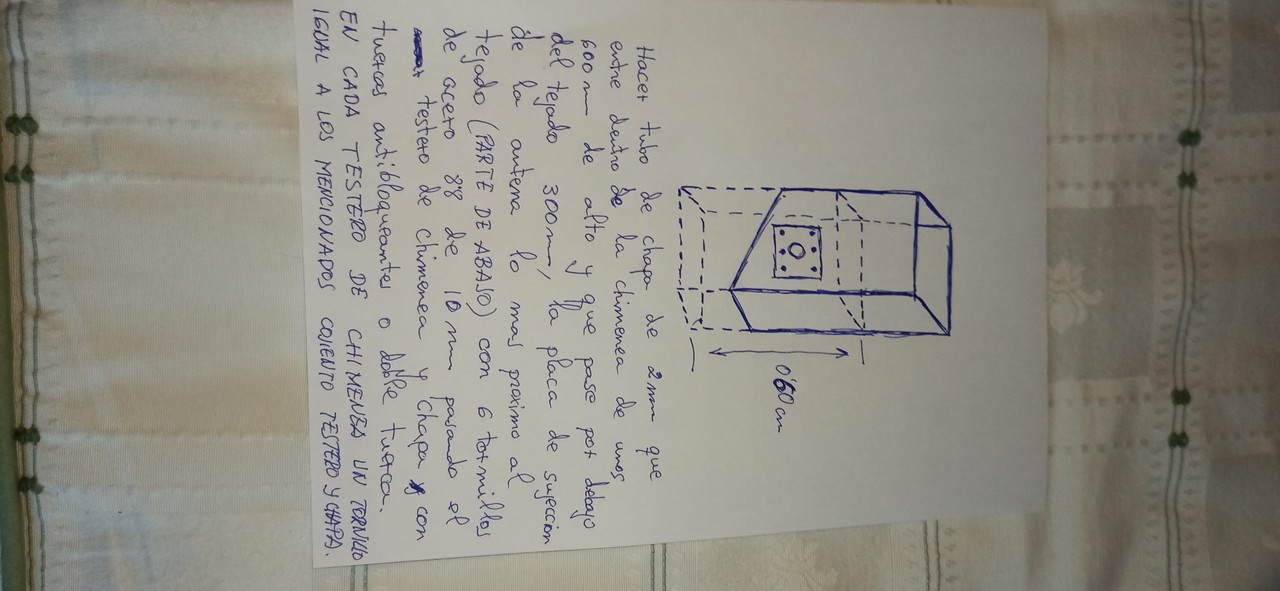 0'60 cm
Hacer tubo de chapa de 2mm que
entre dentro de la chimenea de unos
600 mm de alto y que pase por debajo
del tejado 300mm, la placa de sujeccion
de la antena lo mas proximo al
tejado (PARTE DE ABAJO) con 6 tornillos
de acero 88 de 10 mm pasando el
testero de chimenea y chapa y con
tuercas antibloqueantes o doble tuerca.
EN CADA TESTERO DE CHIMENEA UN TORNILLO
IGUAL A LOS MENCIONADOS COJIENTO TESTERO Y CHAPA.